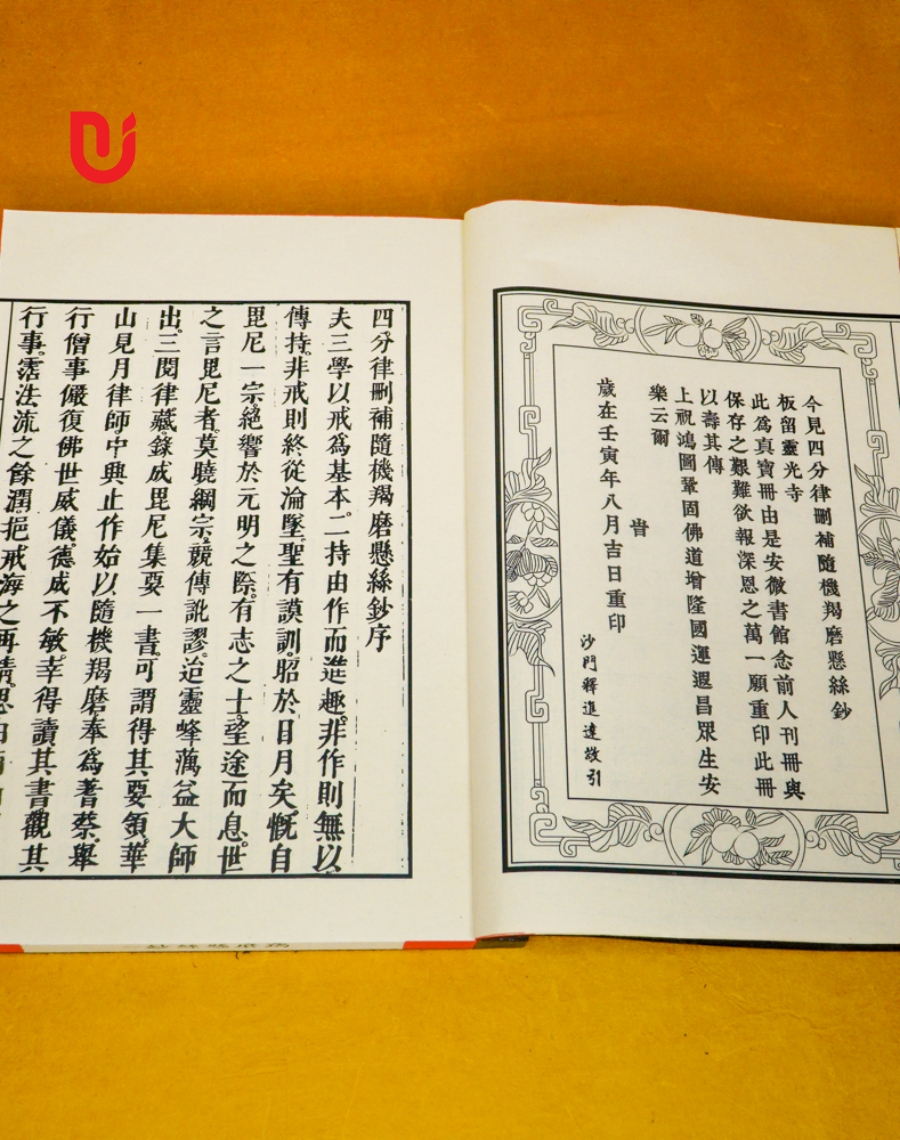 今見四分律刪補隨機羯磨懸絲鈔
板留靈光寺
此爲真寶冊由是安微書館念前人刊冊與
保存之艱難欲報深恩之萬一願重印此冊
以壽其傳
上祝鴻圖鞏固佛道增隆國運遐昌眾生安
樂云爾
旹
歲在壬寅年八月吉日重印
沙門釋進達敬引
四分律刪補隨機羯磨懸絲鈔序
夫三學以戒為基本二持由作而進趣非作則無以
傳持非戒則終從淪墜聖有謨訓昭於日月矣慨自
毘尼一宗絕響於元明之際有志之士望途而息世
之言毘尼者莫曉綱宗競傳訛謬迨靈峰蕅益大師
出三閱律藏錄成毘尼集要一書可謂得其要領華
山見月律師中興止作始以隨機羯磨奉為蓍蔡舉
行僧事儼復佛世威儀德成不敏幸得讀其書觀其
行事霑法流之餘潤挹戒海之再清思